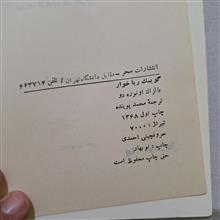 انتشارات سحر — مقابل دانشگاه تهران / تلفن ۶۶۳۷۱۴
گوبسک رباخوار
بالزاک اونوره دو
ترجمهٔ محمد پوینده
چاپ اول ۱۳۶۸
تیراژ: ۷۰۰۰
حروفچینی احمدی
چاپ: نوبهار
حق چاپ محفوظ است